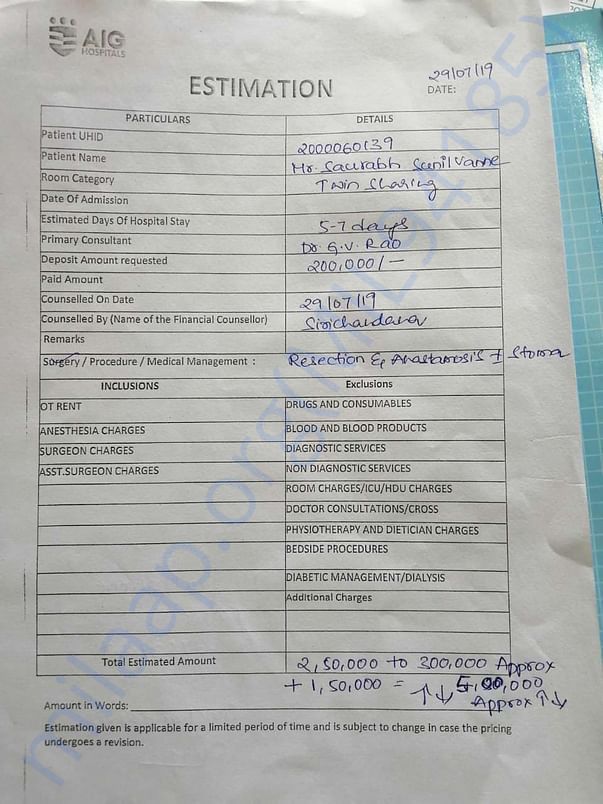 AIG
HOSPITALS
ESTIMATION
29/07/19
DATE:
PARTICULARS DETAILS
Patient UHID 2000060139
Patient Name Mr. Saurabh Sunil Vanne
Room Category Twin Sharing
Date Of Admission
Estimated Days Of Hospital Stay 5-7 days
Primary Consultant Dr. G.V. Rao
Deposit Amount requested 200,000/-
Paid Amount
Counselled On Date 29/07/19
Counselled By (Name of the Financial Counsellor) Sirichandana
Remarks
Surgery / Procedure / Medical Management : Resection & Anastamosis ± Stoma
INCLUSIONS Exclusions
OT RENT DRUGS AND CONSUMABLES
ANESTHESIA CHARGES BLOOD AND BLOOD PRODUCTS
SURGEON CHARGES DIAGNOSTIC SERVICES
ASST.SURGEON CHARGES NON DIAGNOSTIC SERVICES
ROOM CHARGES/ICU/HDU CHARGES
DOCTOR CONSULTATIONS/CROSS
PHYSIOTHERAPY AND DIETICIAN CHARGES
BEDSIDE PROCEDURES
DIABETIC MANAGEMENT/DIALYSIS
Additional Charges
Total Estimated Amount 2,50,000 to 300,000 Approx
+ 1,50,000 = ↑↓ 5,00,000
Approx ↑↓
Amount in Words:
Estimation given is applicable for a limited period of time and is subject to change in case the pricing
undergoes a revision.